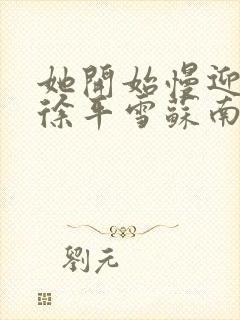 她開始慢迎
徐年雪蘇南
劉元